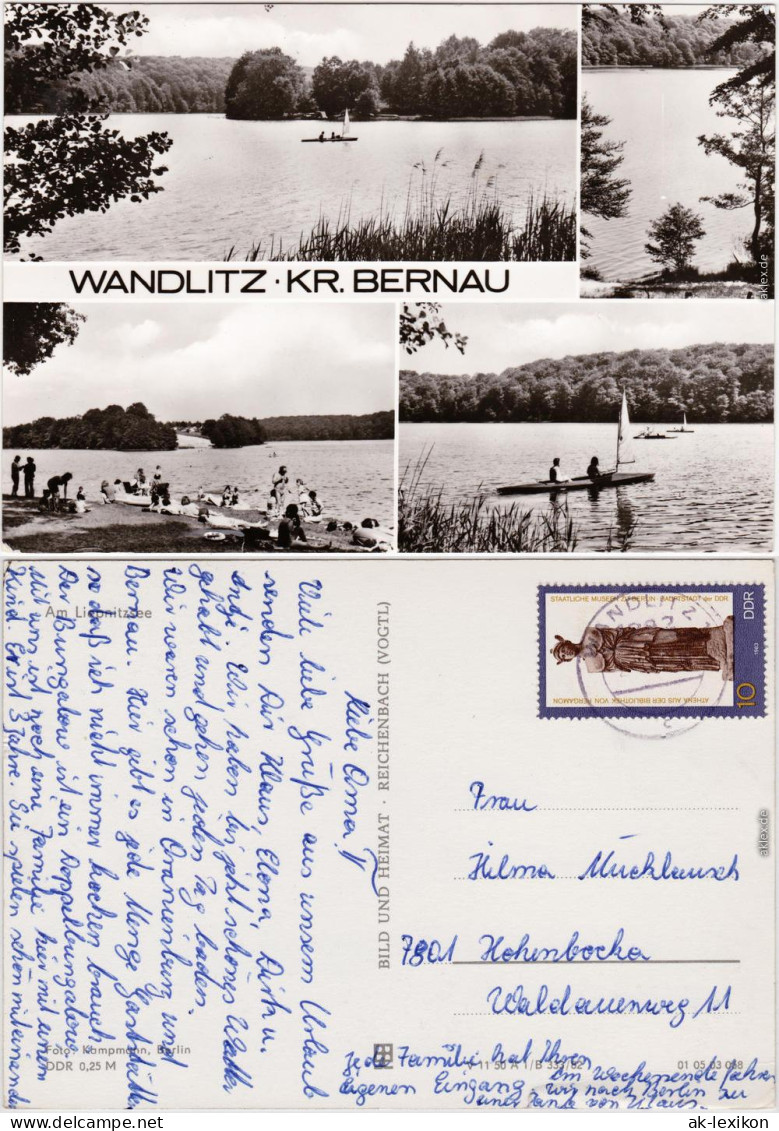 WANDLITZ · KR. BERNAU
aklex.de
Am Liepnitzsee
Liebe Oma!
Viele liebe Grüße aus unserm Urlaub
senden Dir Klaus, Elona, Dirk u.
Antje. Wir haben bis jetzt schönes Wetter
gehabt und gehen jeden Tag baden.
Wir waren schon in Oranienburg und
Bernau. Hier gibt es jede Menge Gaststätten
so daß ich nicht immer kochen brauch.
Der Bungalow ist ein Doppelbungalow
Mit uns ist noch eine Familie hier mit einem
Kind. Er ist 3 Jahre. Sie spielen schön miteinander
Jede Familie hat Ihren
eigenen Eingang. Am Wochenende fahren
wir nach Berlin zu
einer Tante von Klaus.
Foto: Kampmann, Berlin
DDR 0,25 M
BILD UND HEIMAT · REICHENBACH (VOGTL)
STAATLICHE MUSEEN ZU BERLIN · HAUPTSTADT der DDR
ATHENA AUS DER BIBLIOTHEK VON PERGAMON
DDR
1982
10
WANDLITZ
Frau
Hilma Mucklausch
7801 Hohenbocka
Waldauenweg 11
V 11 50 A 1/B 333/82
01 05 03 088
aklex.de
www.ak-ansichtskarten.de
ak-lexikon